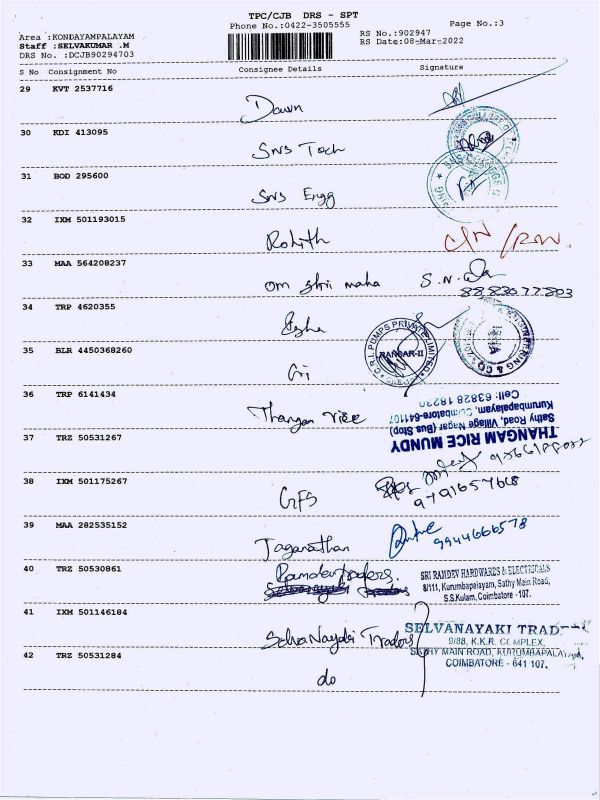 TPC/CJB DRS - SPT
Phone No.:0422-3505555
Page No.:3
Area :KONDAYAMPALAYAM
Staff :SELVAKUMAR .M
DRS No. :DCJB90294703
RS No.:902947
RS Date:08-Mar-2022
S No Consignment No Consignee Details Signature
29 KVT 2537716 Dawn
30 KDI 413095 SNS Tech
31 BOD 295600 SNS Engg
32 IXM 501193015 Rohith
33 MAA 564208237 om shri maha S.N.
34 TRP 4620355
C.R.I. PUMPS PRIVATE LIMITED
35 BLR 4450368260 Cri
36 TRP 6141434 Thangam rice
THANGAM RICE MUNDY
Sathy Road, Village Nagar (Bus Stop)
Kurumbapalayam, Coimbatore-641107
Cell: 63828 18230
37 TRZ 50531267
38 IXM 501175267 GFS
9791657668
39 MAA 282535152 Jaganathan 9944666578
40 TRZ 50530861 Ramdev traders.
SRI RAMDEV HARDWARES & ELECTRICALS
8/111, Kurumbapalayam, Sathy Main Road,
S.S.Kulam, Coimbatore - 107.
41 IXM 501146184 Selva Nayaki Traders
SELVANAYAKI TRAD
9/88, K.K.R. COMPLEX,
SATHY MAIN ROAD, KURUMBAPALAYAM
COIMBATORE - 641 107.
42 TRZ 50531284 do